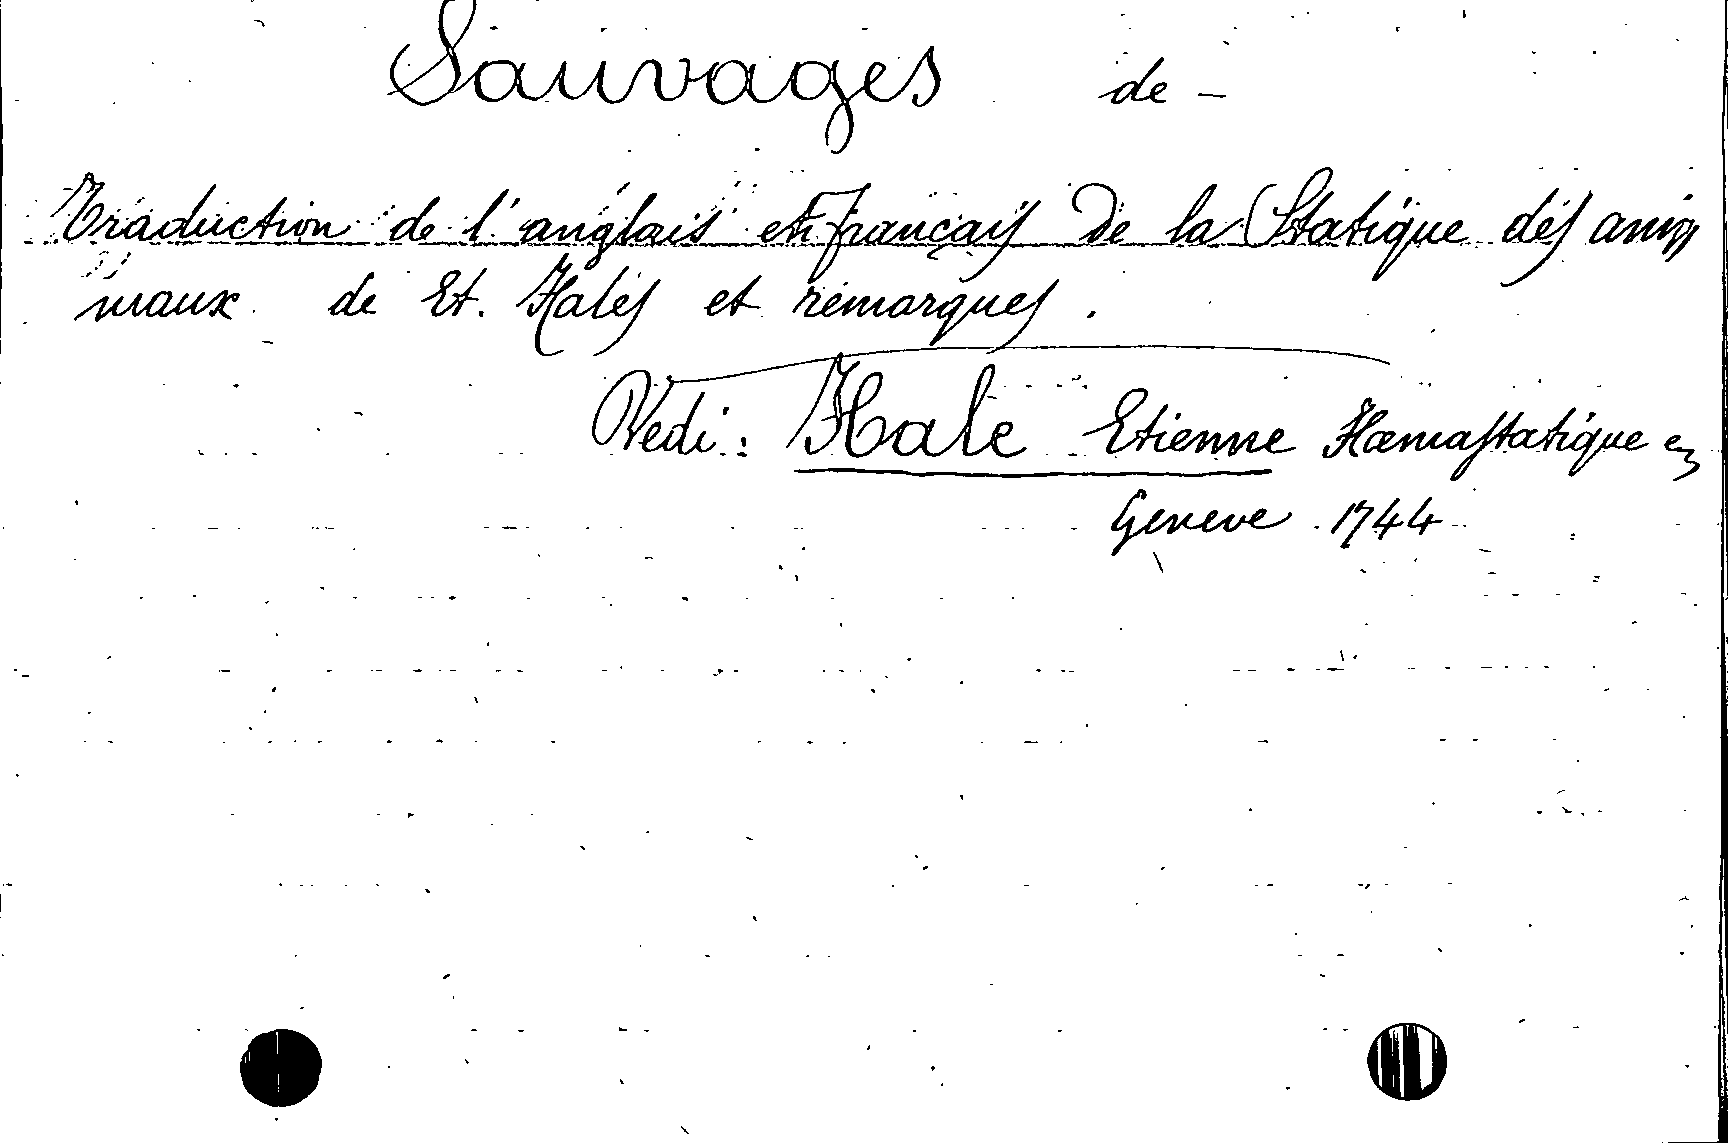 Sauvages de -
Traduction de l'anglais en français de la Statique des ani=
maux de Et. Hales et remarques.
Vedi: Hale Etienne Hæmastatique ec
Geneve 1744